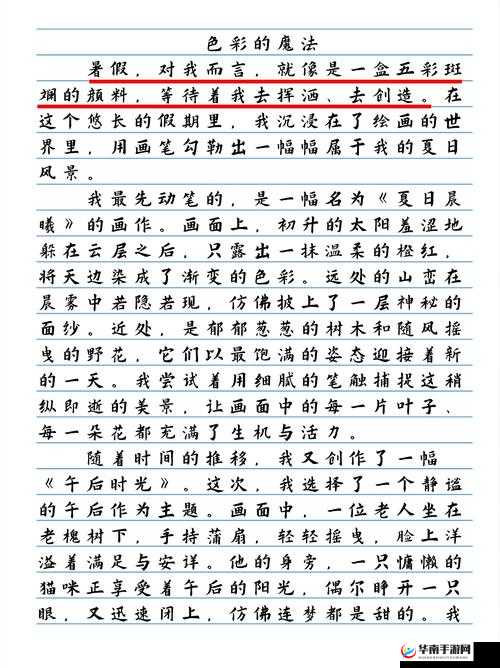 色彩的魔法
暑假，对我而言，就像是一盒五彩斑
斓的颜料，等待着我去挥洒、去创造。在
这个悠长的假期里，我沉浸在了绘画的世
界里，用画笔勾勒出一幅幅属于我的夏日
风景。
我最先动笔的，是一幅名为《夏日晨
曦》的画作。画面上，初升的太阳羞涩地
躲在云层之后，只露出一抹温柔的橙红，
将天边染成了渐变的色彩。远处的山峦在
晨雾中若隐若现，仿佛披上了一层神秘的
面纱。近处，是郁郁葱葱的树木和随风摇
曳的野花，它们以最饱满的姿态迎接着新
的一天。我尝试着用细腻的笔触捕捉这稍
纵即逝的美景，让画面中的每一片叶子、
每一朵花都充满了生机与活力。
随着时间的推移，我又创作了一幅
《午后时光》。这次，我选择了一个静谧
的午后作为主题。画面中，一位老人坐在
老槐树下，手持蒲扇，轻轻摇曳，脸上洋
溢着满足与安详。他的身旁，一只慵懒的
猫咪正享受着午后的阳光，偶尔睁开一只
眼，又迅速闭上，仿佛连梦都是甜的。我
华南手游网